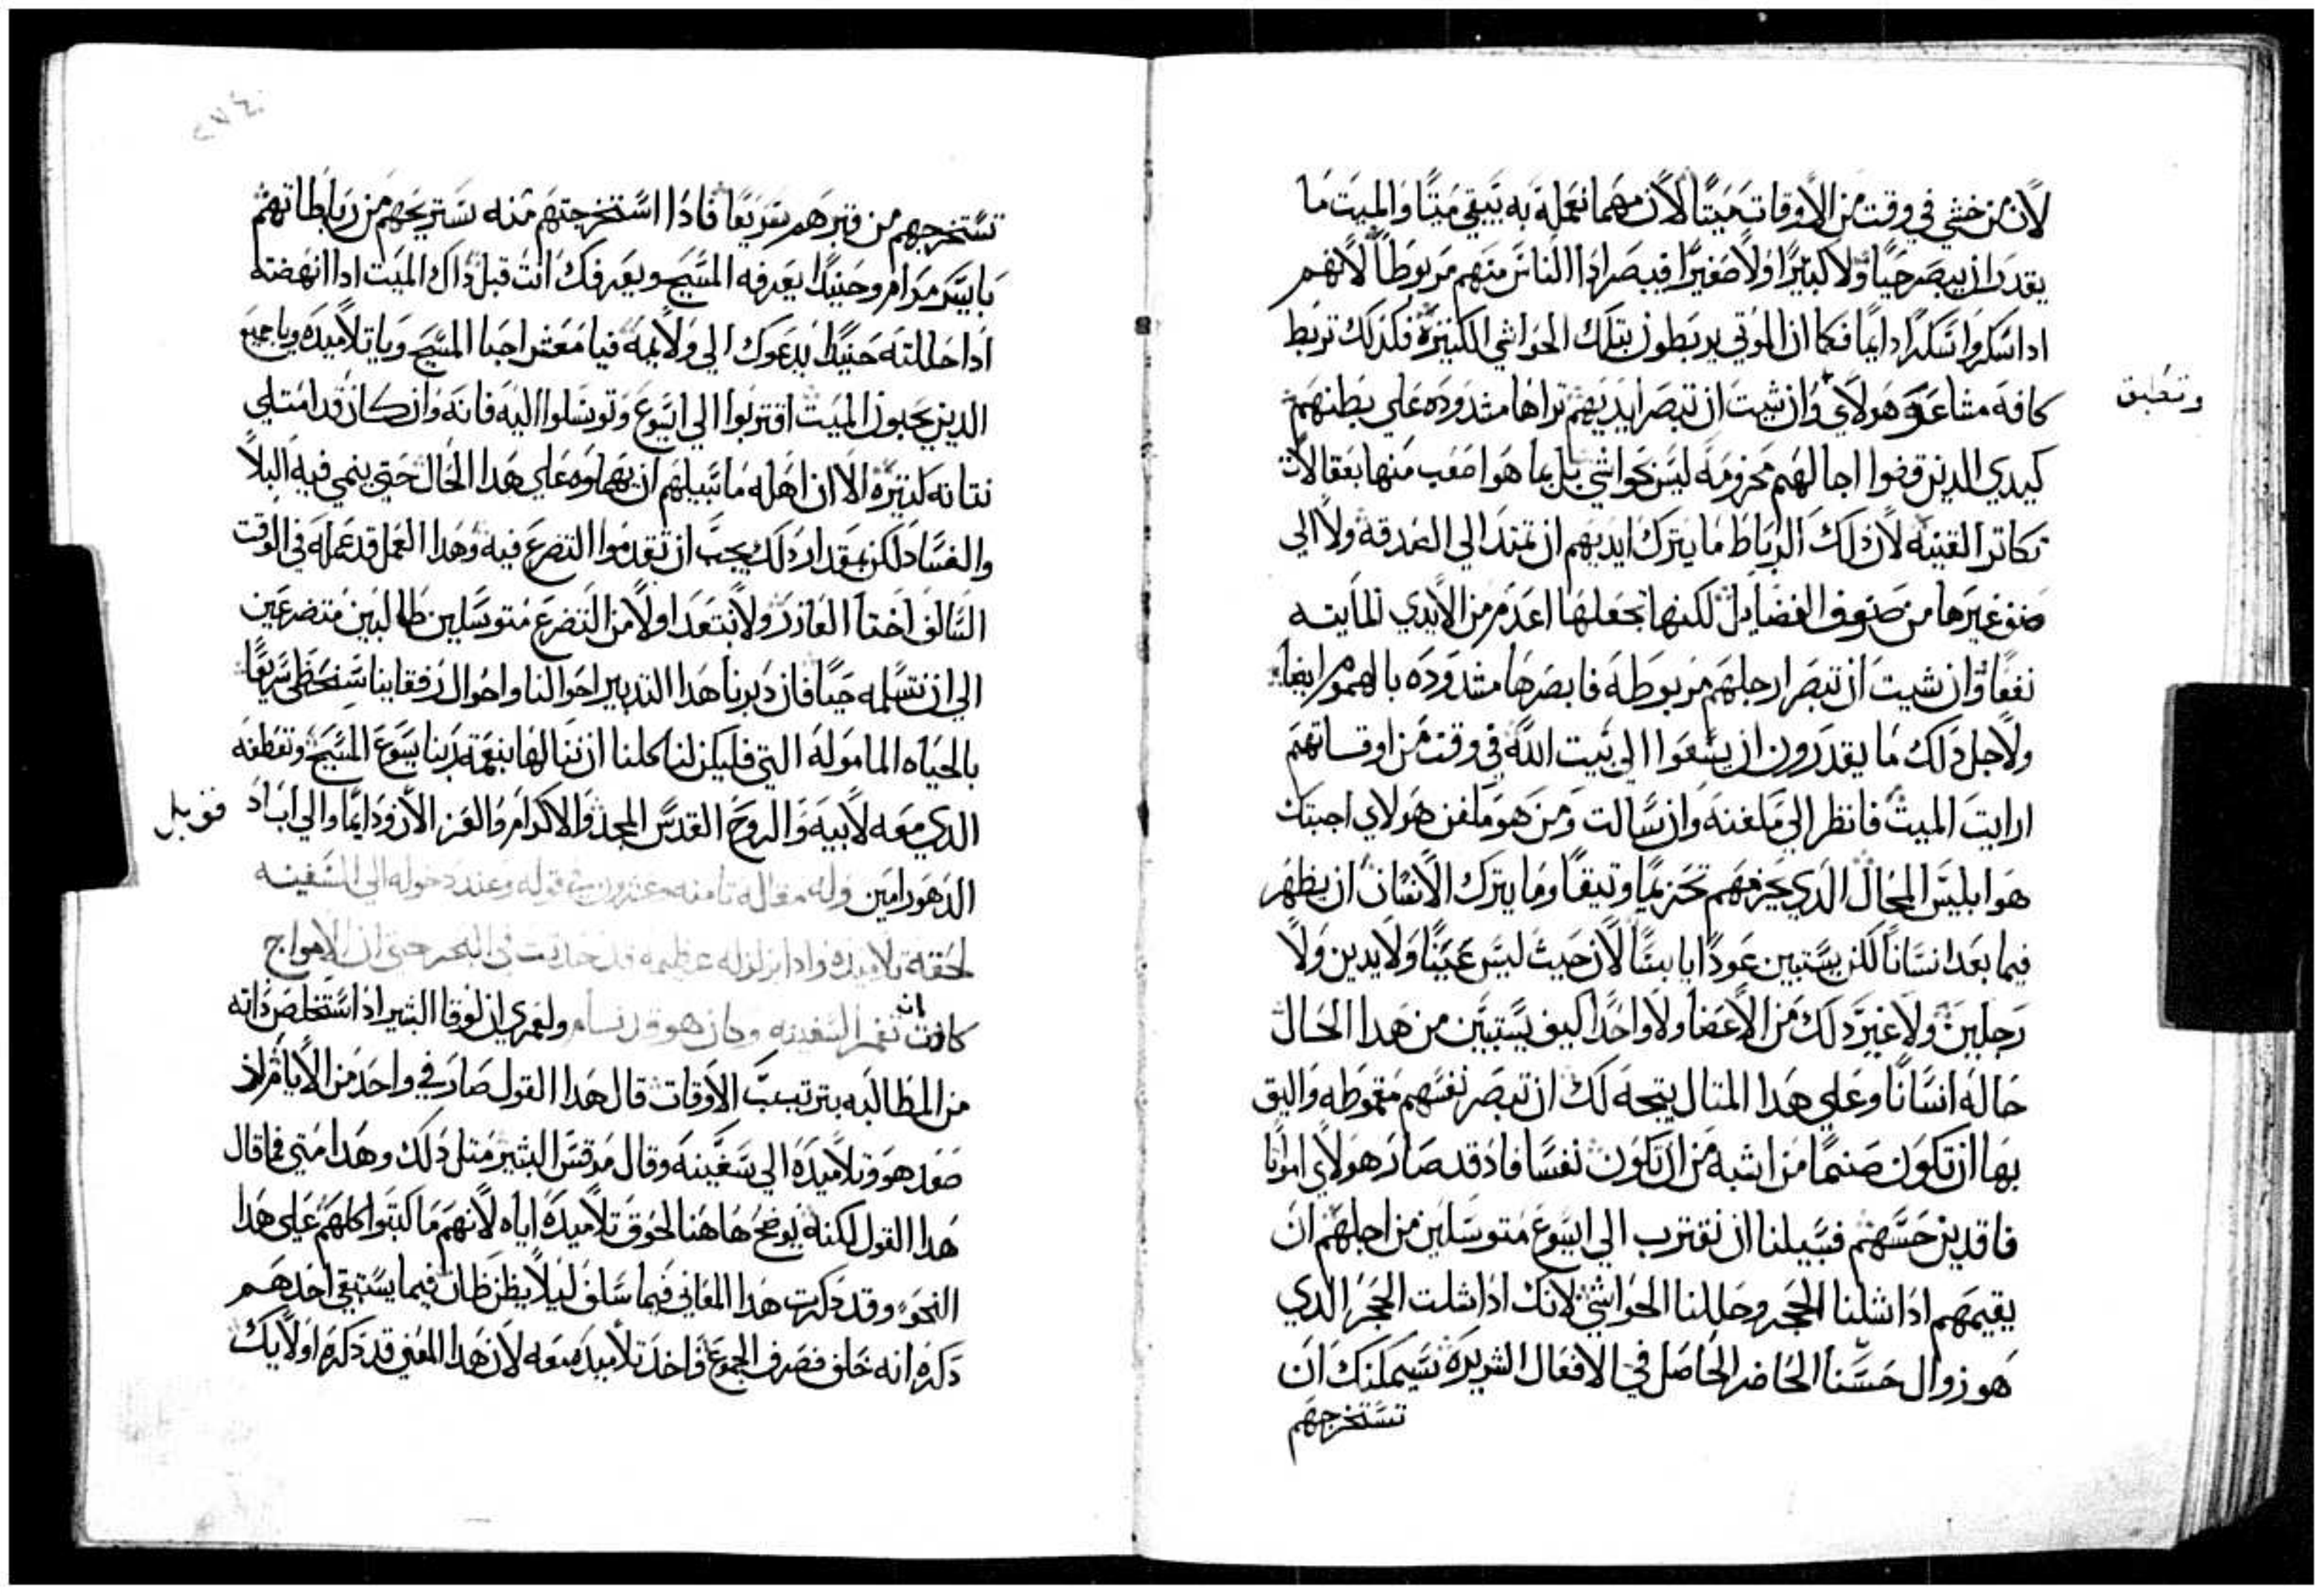 لان من خشي في وقت من الاوقات ميتًا لان مهما نعمله به يبقي ميتًا والميت ما
يقدر ان يبصر حيًا ولا كبيرًا ولا صغيرًا فيبصر اذا الناس منهم مربوطًا لانهم
اذا سكروا سكرًا دايمًا فكما ان الموتي يربطون بتلك الحواشي الكثيرة فكذلك تربط
كافة مشاعر هولاي وان شيت ان تبصر ايديهم تراها مشدوده علي بطنهم
وتطبق
كيدي الذين قضوا اجالهم محزومه ليس بحواشي بل بما هو اصعب منها بعقالات
تكاتر القنيه لان ذلك الرباط ما يترك ايديهم ان تمتد الي الصدقه ولا الي
صنف غيرها من صنوف الفضايل لكنها تجعلها اعدم من الايدي المايته
نفعًا وان شيت ان تبصر ارجلهم مربوطه فابصرها مشدوده بالهموم ايضًا
ولاجل ذلك ما يقدرون ان يسعوا الي بيت الله في وقت من اوقاتهم
ارايت الميت فانظر الي ملفنه وان سالت ومن هو ملفن هولاي اجبتك
هو ابليس المحال الذي يحزمهم تحزيمًا وتيقًا وما يترك الانسان ان يظهر
فيما بعد انسانًا لكن يستبين عودًا يابسًا لان حيث ليس عينًا ولا يدين ولا
رجلين ولا غير ذلك من الاعضا ولا واحدًا كيف يستبين من هذا الحال
حاله انسانًا وعلي هذا المتال يتجه لك ان تبصر نفسهم مقموطه واليق
بها ان تكون صنمًا من اشبه من ان تكون نفسًا فاذ قد صار هولاي امواتًا
فاقدين حسهم فسبيلنا ان نقترب الي ايسوع متوسلين من اجلهم ان
يقيمهم اذا شلنا الحجر وحللنا الحواشي لانك اذا شلت الحجر الذي
هو زوال حسنا الحاضر الحاصل في الافعال الشريره سيمكنك ان
تستخرجهم
تستخرجهم من قبرهم سريعًا فاذا استخرجتهم منه تستريحهم من رباطاتهم
بايسر مرام وحينيذ يعرفه المسيح ويعرفك انت قبل ذاك الميت اذا انهضته
اذا حللته حينيذ يدعوك الي ولايمه فيا معشر احبا المسيح ويا تلاميذه ويا جميع
الذين يحبون الميت اقتربوا الي ايسوع وتوسلوا اليه فانه وان كان قد امتلي
نتانه كثيره الا ان اهله ما سبيلهم ان يهملوه علي هذا الحال حتي ينمي فيه البلا
والفساد لكن بمقدار ذلك يجب ان تقدموا التضرع فيه وهذا العمل قد عمله في الوقت
السالف اختا العاذر ولا نبتعد اولا من التضرع متوسلين طالبين متضرعين
الي ان نتسلمه حيًا فان دبرنا هذا التدبير احوالنا واحوال رفقاينا سنحظي سريعًا
بالحياه الماموله التي فليكن لنا كلنا ان ننالها بنعمة ربنا يسوع المسيح وتعطفه
الذي معه لابيه والروح القدس المجد والاكرام والعز الان ودايمًا والي اباد
قوبل
الدهور امين وله مقاله تامنه وعشرون في قوله وعند دخوله الي السفينه
لحقه تلاميذه واذا بزلزله عظيمه قد حدتت في البحر حتي ان الامواج
كادت ان تغمر السفينه وكان هو قد نام ولعمري ان لوقا البشير اذ استخلص ذاته
من المطالبه بترتيب الاوقات قال هذا القول صار في واحد من الايام ان
صعد هو وتلاميذه الي سفينه وقال مرقس البشير متل ذلك وهذا متي فما قال
هذا القول لكنه يوضح هاهنا لحوق تلاميذه اياه لانهم ما كتبوا كلهم علي هذا
النحو وقد ذكرت هذا المعاني فيما سلف ليلا يظن ظان فيما يستبقي احدهم
ذكره انه خلف فصرف الجموع فاخذ تلاميذه معه لان هذا المعني قد ذكره اولايك